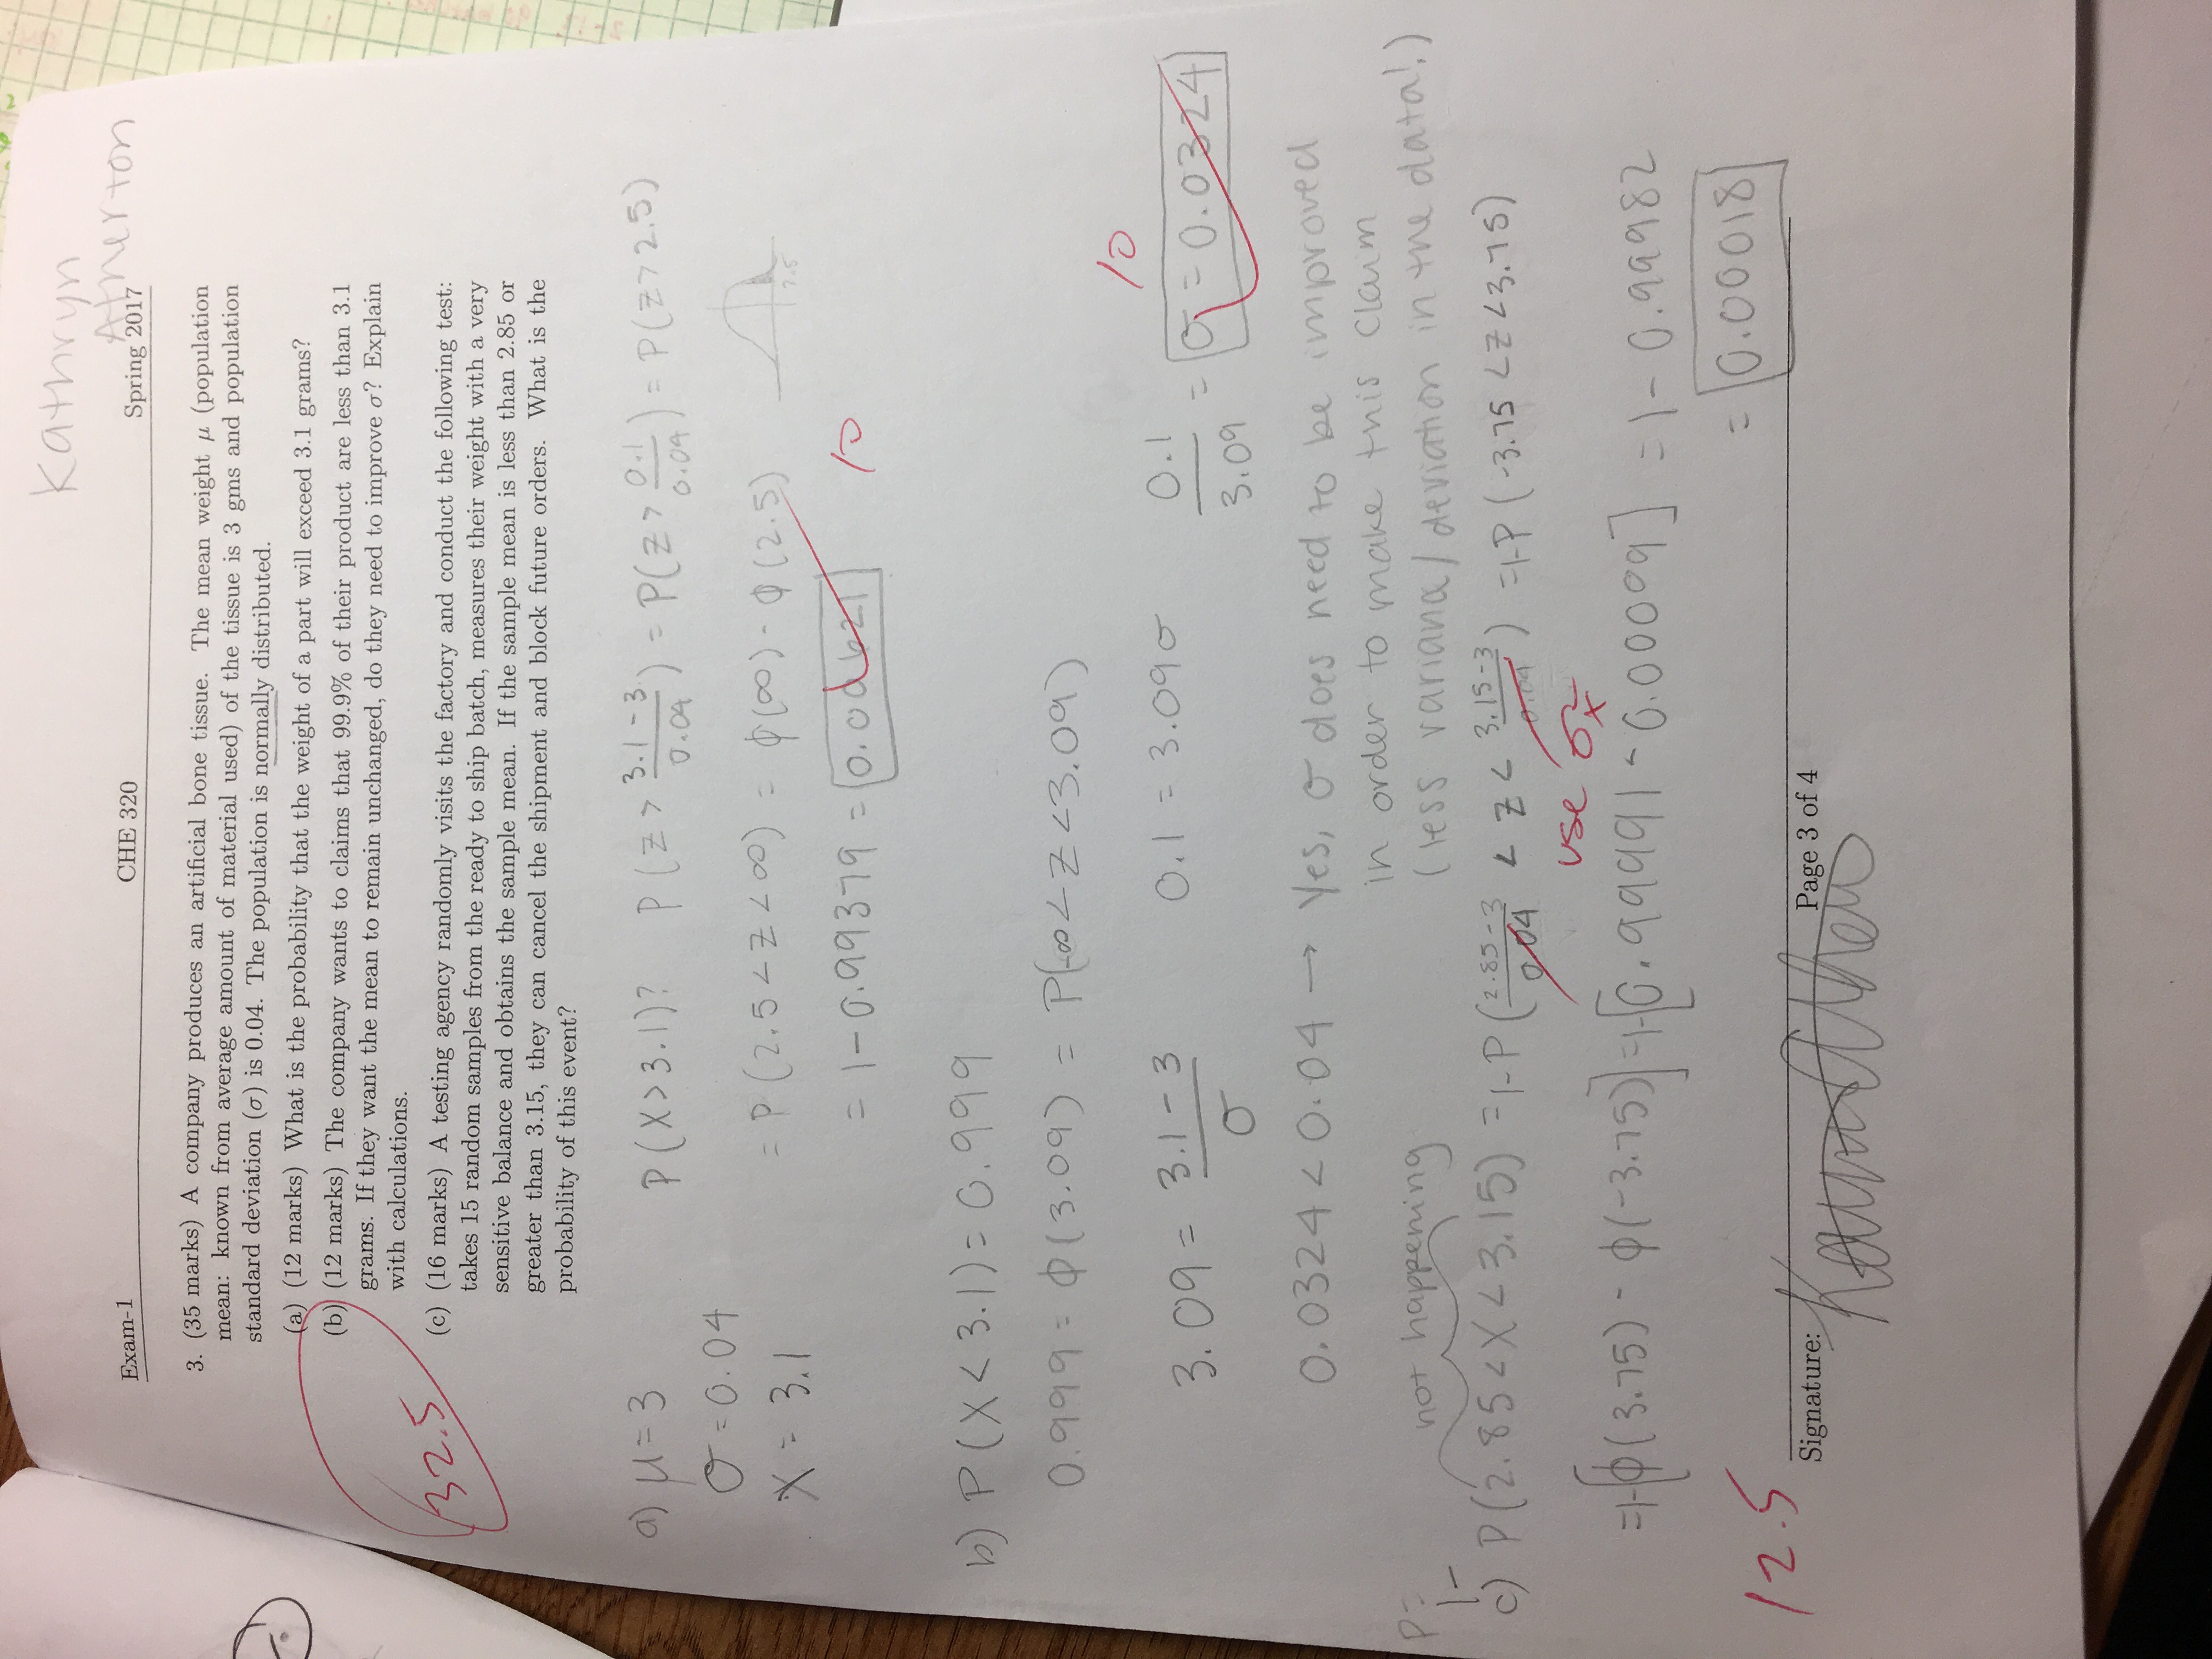 Kathryn
Atherton
Exam-1 CHE 320 Spring 2017
3. (35 marks) A company produces an artificial bone tissue. The mean weight μ (population
mean: known from average amount of material used) of the tissue is 3 gms and population
standard deviation (σ) is 0.04. The population is normally distributed.
(a) (12 marks) What is the probability that the weight of a part will exceed 3.1 grams?
(b) (12 marks) The company wants to claims that 99.9% of their product are less than 3.1
grams. If they want the mean to remain unchanged, do they need to improve σ? Explain
with calculations.
32.5
(c) (16 marks) A testing agency randomly visits the factory and conduct the following test:
takes 15 random samples from the ready to ship batch, measures their weight with a very
sensitive balance and obtains the sample mean. If the sample mean is less than 2.85 or
greater than 3.15, they can cancel the shipment and block future orders. What is the
probability of this event?
a) μ = 3 P(X > 3.1)? P(Z > (3.1 - 3)/0.04) = P(Z > 0.1/0.04) = P(Z > 2.5)
σ = 0.04
= P(2.5 < Z < ∞) = Φ(∞) - Φ(2.5)
2.5
X = 3.1
= 1 - 0.99379 = 0.00621 10
b) P(X < 3.1) = 0.999
0.999 = Φ(3.09) = P(-∞ < Z < 3.09)
10
3.09 = (3.1 - 3)/σ 0.1 = 3.09σ 0.1/3.09 = σ = 0.0324
0.0324 < 0.04 → Yes, σ does need to be improved
in order to make this claim
(less variance/deviation in the data!)
P= not happening
1-
c) P(2.85 < X < 3.15) = 1-P((2.85-3)/0.04 < Z < (3.15-3)/0.04) = 1-P(-3.75 < Z < 3.75)
use σx̄
= 1-[Φ(3.75) - Φ(-3.75)] = 1-[0.99991 - 0.00009] = 1 - 0.99982
= 0.00018
12.5
Signature: Page 3 of 4